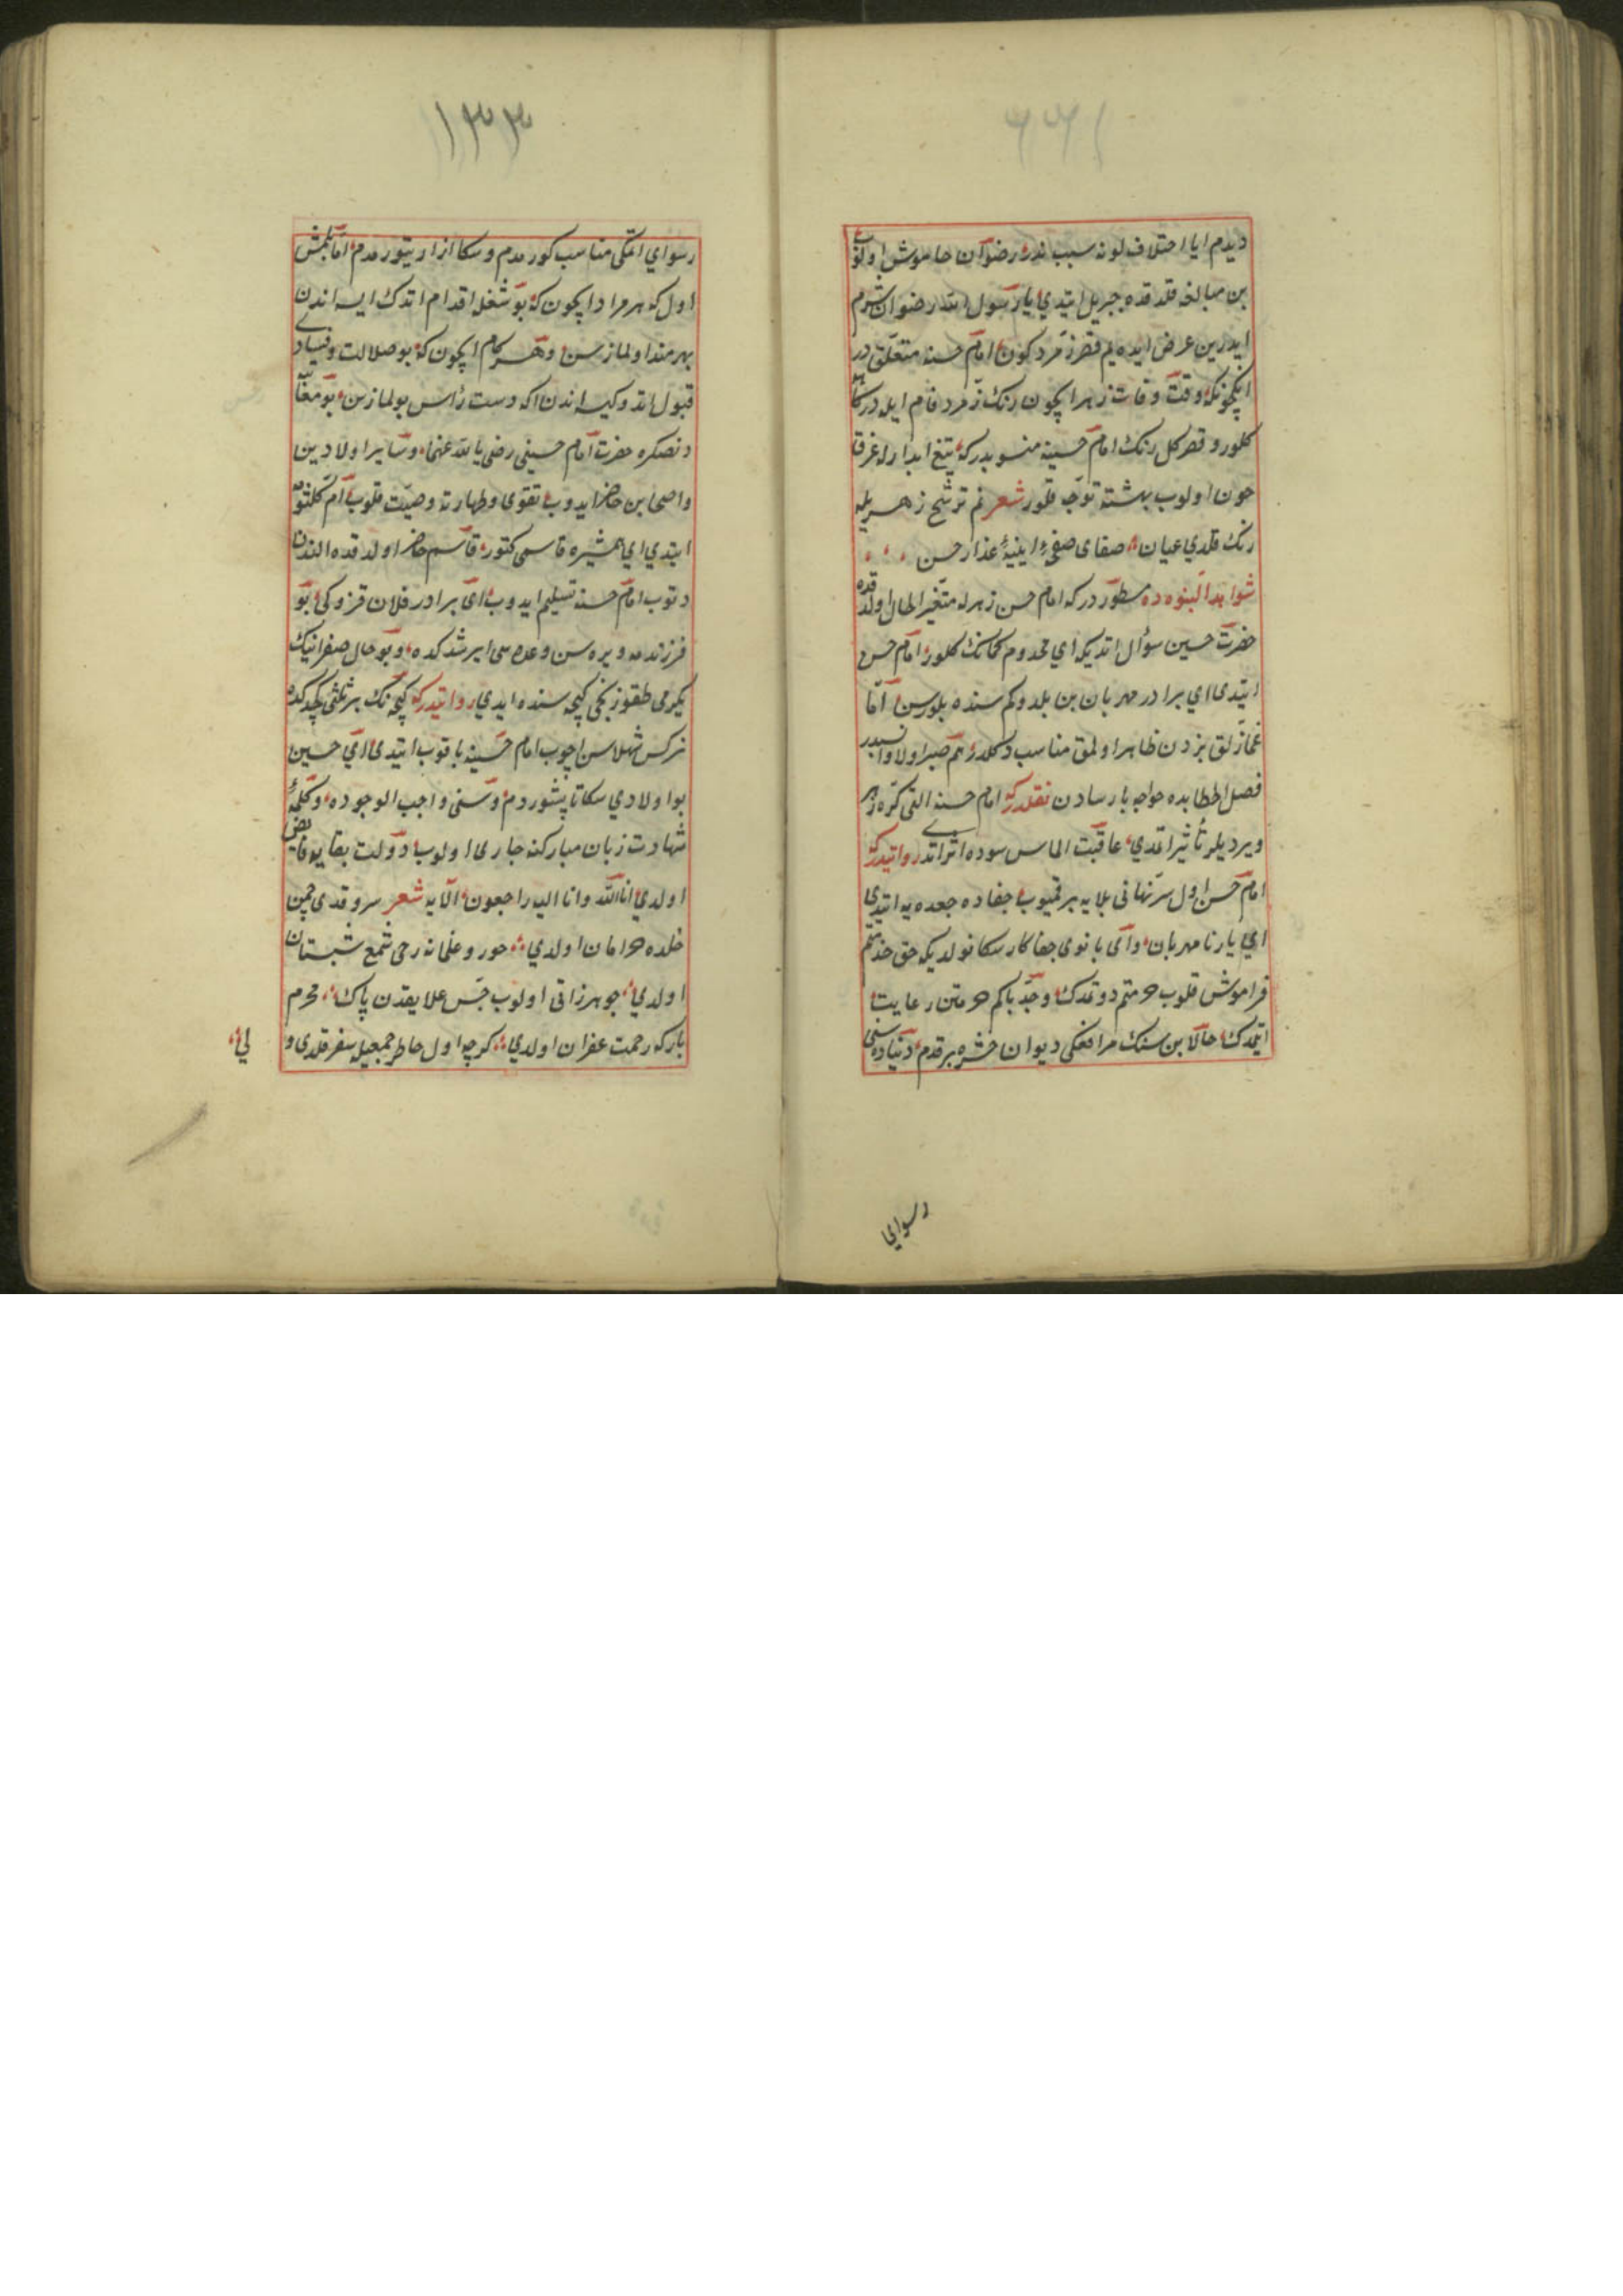 ديدم ايا اختلاف لونه سبب ندر رضوان خاموش اولوب
بن مبالغه قلدقده جبريل ايتدي يا رسول الله رضوان شرم
ايدر بن عرض ايده يم قصر زمرد كون امام حسنه متعلق در
انيكچونكه وقت وفات زهر ايچون رنك زمرد فام ايله دركاهه
كلور و قصر كل رنك امام حسينه منسوبدر كه تيغ ابدارله غرقا
خون اولوب بهشته توجه قلور شعر نم ترشح زهريله
رنك قلدي عيان صفاى صفحۀ ايينۀ عذار حسن
شواهد النبوه ده مسطوردركه امام حسن زهرله متغير الحال اولدقده
حضرت حسين سؤال اتديكه اي مخدوم كمانك كلور امام حسن
ايتدى اي برادر مهربان بن بلدوكم سنده بلورسن اما
غمازلق بزدن ظاهر اولمق مناسب دكلدر هم صبر اولاو انسبدر
فصل الخطابده خواجه پارسادن نقلدركه امام حسنه التى كره زهر
ويرديلر تأثير اتمدي عاقبت الماس سوده اثر اتدى روايتدركه
امام حسن اول سر نهانى بلايه برقميوب خفاده جعده يه ايتدى
اي يار نا مهربان و اى بانوى جفا كار سكا نولديكه حق خدمتم
فراموش قلوب حرمتم دوتمدك و جد پاكم حرمتن رعايت
ايتمدك حالا بن سنك مرافعكى ديوان حشره برقدم دنياده سنى
رسواي
١٣٣
رسواي اتمكى مناسب كورمدم و سكا ازار يتورمدم اما بلمش
اول كه هر مراد ايچون كه بو شغله اقدام اتدك ايسه اندن
بهرمند اولمازسن و هر كام ايچون كه بو ضلالت و فسادى
قبول اتدوكسه اندن اكه دست رس بولمازسن بو معنادن
دنصكره حضرت امام حسينى رضي الله عنهما و ساير اولادين
و اصحابن حاضر ايدوب تقوى و طهارته وصيت قلوب ام كلثومه
ايتدي اي همشيره قاسمى كتور قاسم حاضر اولدقده الندن
دتوب امام حسينه تسليم ايدوب اى برادر فلان قزوكى بو
فرزندمه ويره سن وعده سى ايرشدكده و بو حال صفرانيك
يكرمى طقوزنجى كيجه سنده ايدي روايتدركه كيجه نك بر ثلثى كچدكده
نركس شهلاسن اچوب امام حسينه باقوب ايتدى اي حسين
بو اولادي سكا تاپشوردم و سنى واجب الوجوده و كلمۀ
شهادت زبان مباركنه جارى اولوب دولت بقايه فايض
اولدي انا لله و انا اليه راجعون الايه شعر سرو قدى چمن
خلده خرامان اولدي حور و غلمانه رخى شمع شبستان
اولدي جوهر ذاتى اولوب حبس علايقدن پاك محرم
باركه رحمت غفران اولدي كرچه اول خاطر جمعيله سفر قلدى و
لي